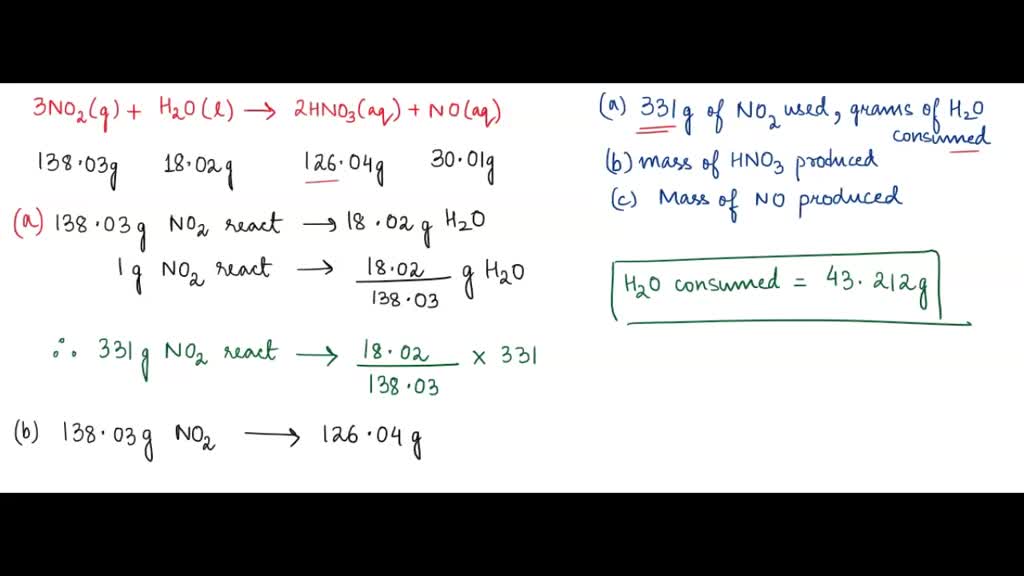 3NO₂(g) + H₂O(l) → 2HNO₃(aq) + NO(aq)
138.03g 18.02g 126.04g 30.01g
(a) 138.03g NO₂ react → 18.02g H₂O
1g NO₂ react → 18.02/138.03 g H₂O
∴ 331g NO₂ react → 18.02/138.03 × 331
(b) 138.03g NO₂ → 126.04g
(a) 331g of NO₂ used, grams of H₂O
consumed
(b) mass of HNO₃ produced
(c) Mass of NO produced
H₂O consumed = 43.212g